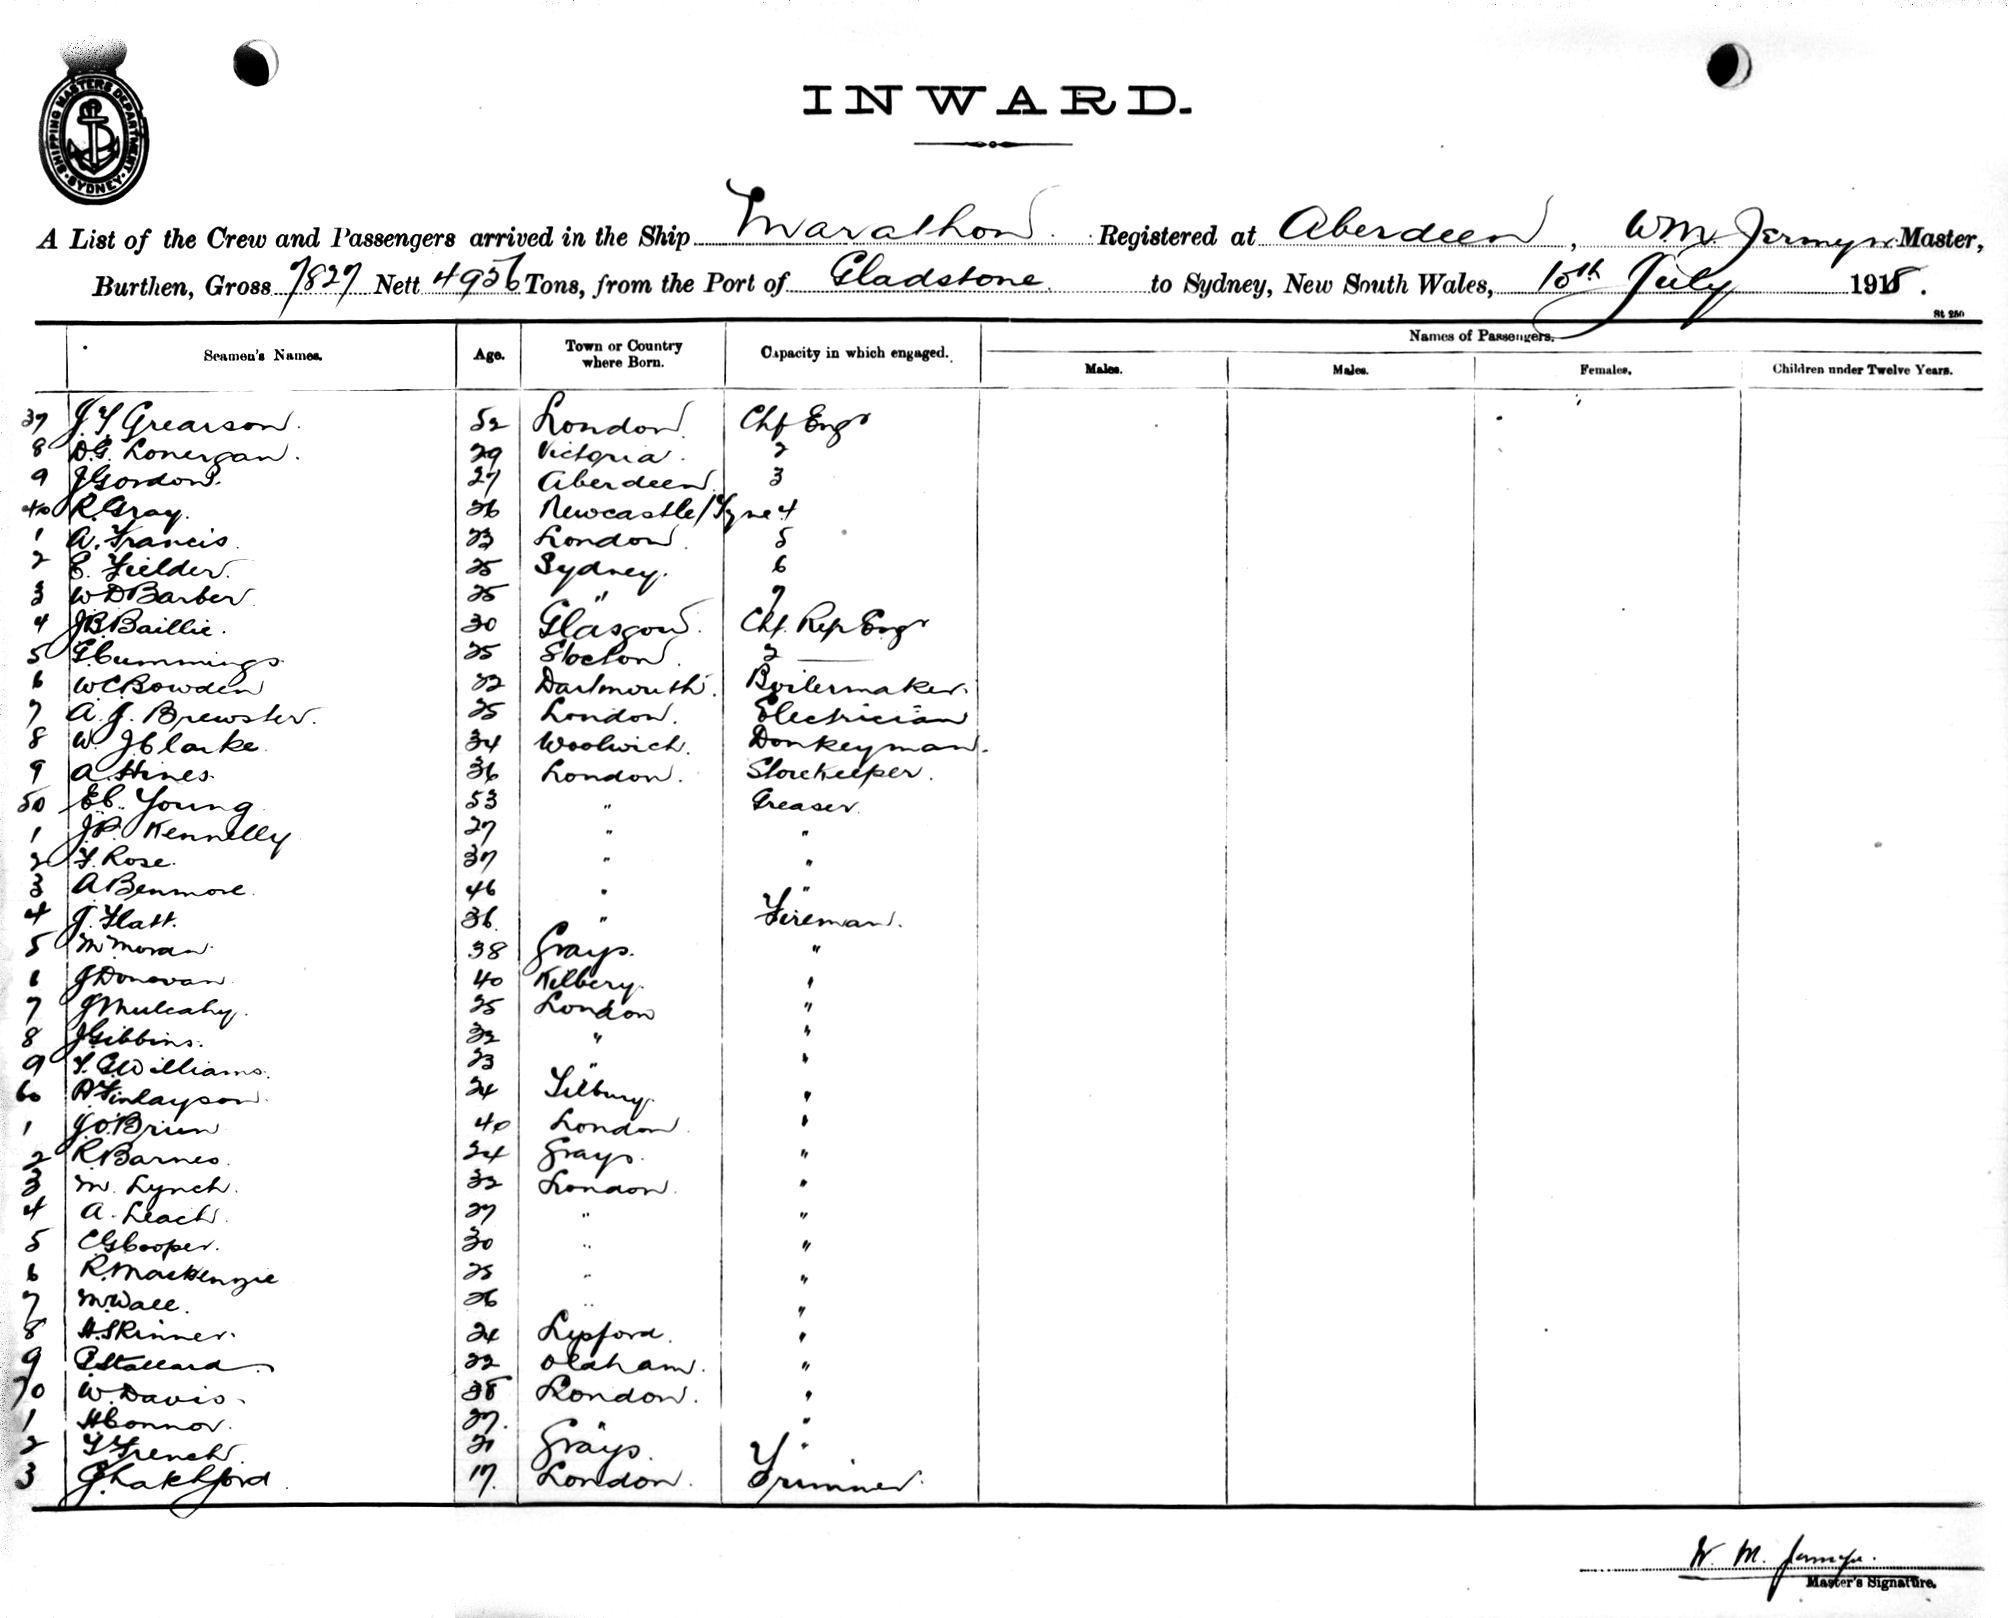 SHIPPING MASTERS DEPARTMENT. SYDNEY
INWARD.
A List of the Crew and Passengers arrived in the Ship Marathon. Registered at Aberdeen, W.M. Jermyn Master,
Burthen, Gross 7827 Nett 4956 Tons, from the Port of Gladstone. to Sydney, New South Wales, 10th July 1918.
St 250
Seamen's Names. Age. Town or Country where Born. Capacity in which engaged. Names of Passengers.
Males. Males. Females. Children under Twelve Years.
37 J.Y Grearson. 52 London. Chf Engr
8 D.G. Lonergan. 29 Victoria. 2
9 J Gordon. 27 Aberdeen. 3
40 R. Gray. 26 Newcastle/Tyne 4
1 A. Francis. 23 London. 5
2 E. Fielder. 25 Sydney. 6
3 W D Barber. 25 " 7
4 J B. Baillie. 30 Glasgow. Chf. Rep Engr
5 G. Cummings 25 Stockton. 2
6 W C Bowden 22 Dartmouth. Boilermaker.
7 A. J. Brewster. 25 London. Electrician
8 W. J Clarke. 34 Woolwich. Donkeyman.
9 A. Hines. 36 London. Storekeeper.
50 E C. Young 53 " Greaser.
1 J P. Kennelly 27 " "
2 F. Rose. 37 " "
3 A Benmore. 46 " "
4 J. Flatt. 36. " Fireman.
5 M Moran. 38 Grays. "
6 J Donovan. 40 Kilbery. "
7 J Mulcahy. 25 London "
8 J Gibbins. 32 " "
9 F. E Williams. 23 " "
60 A Finlayson. 24 Tilbury. "
1 J O'Brien 40 London. "
2 R. Barnes. 24 Grays. "
3 M. Lynch. 32 London. "
4 A. Leach. 27 " "
5 C G Cooper. 30 " "
6 R. Mackenzie 25 " "
7 M. Wall. 26 " "
8 H. Skinner. 24 "
9 Stallard. 22 Oldham. "
70 W. Davis. 38 London. "
1 H Connor. 27. " "
2 F French. 21 Grays. "
3 J. Latchford. 17. London. Trimmer.
W. M. Jermyn.
Master's Signature.